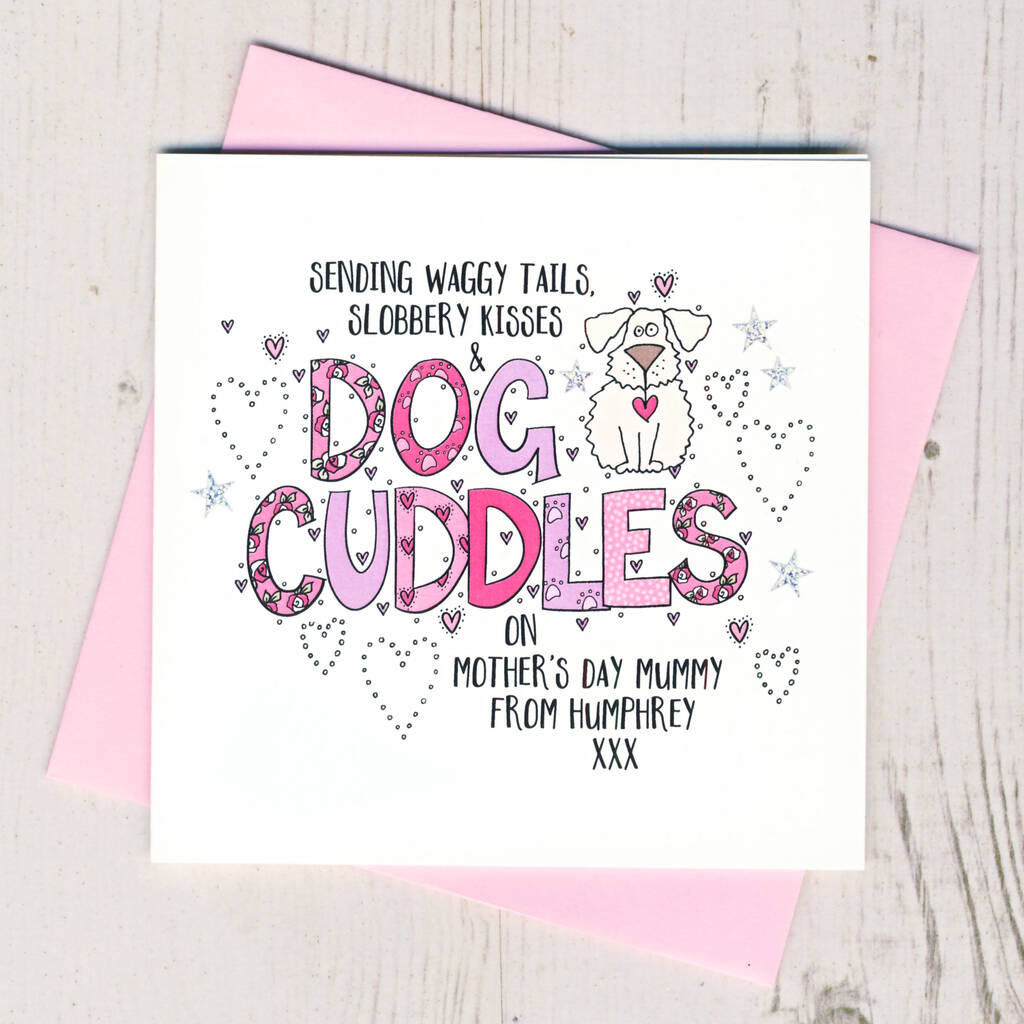 SENDING WAGGY TAILS,
SLOBBERY KISSES
&
DOG
CUDDLES
ON
MOTHER'S DAY MUMMY
FROM HUMPHREY
XXX